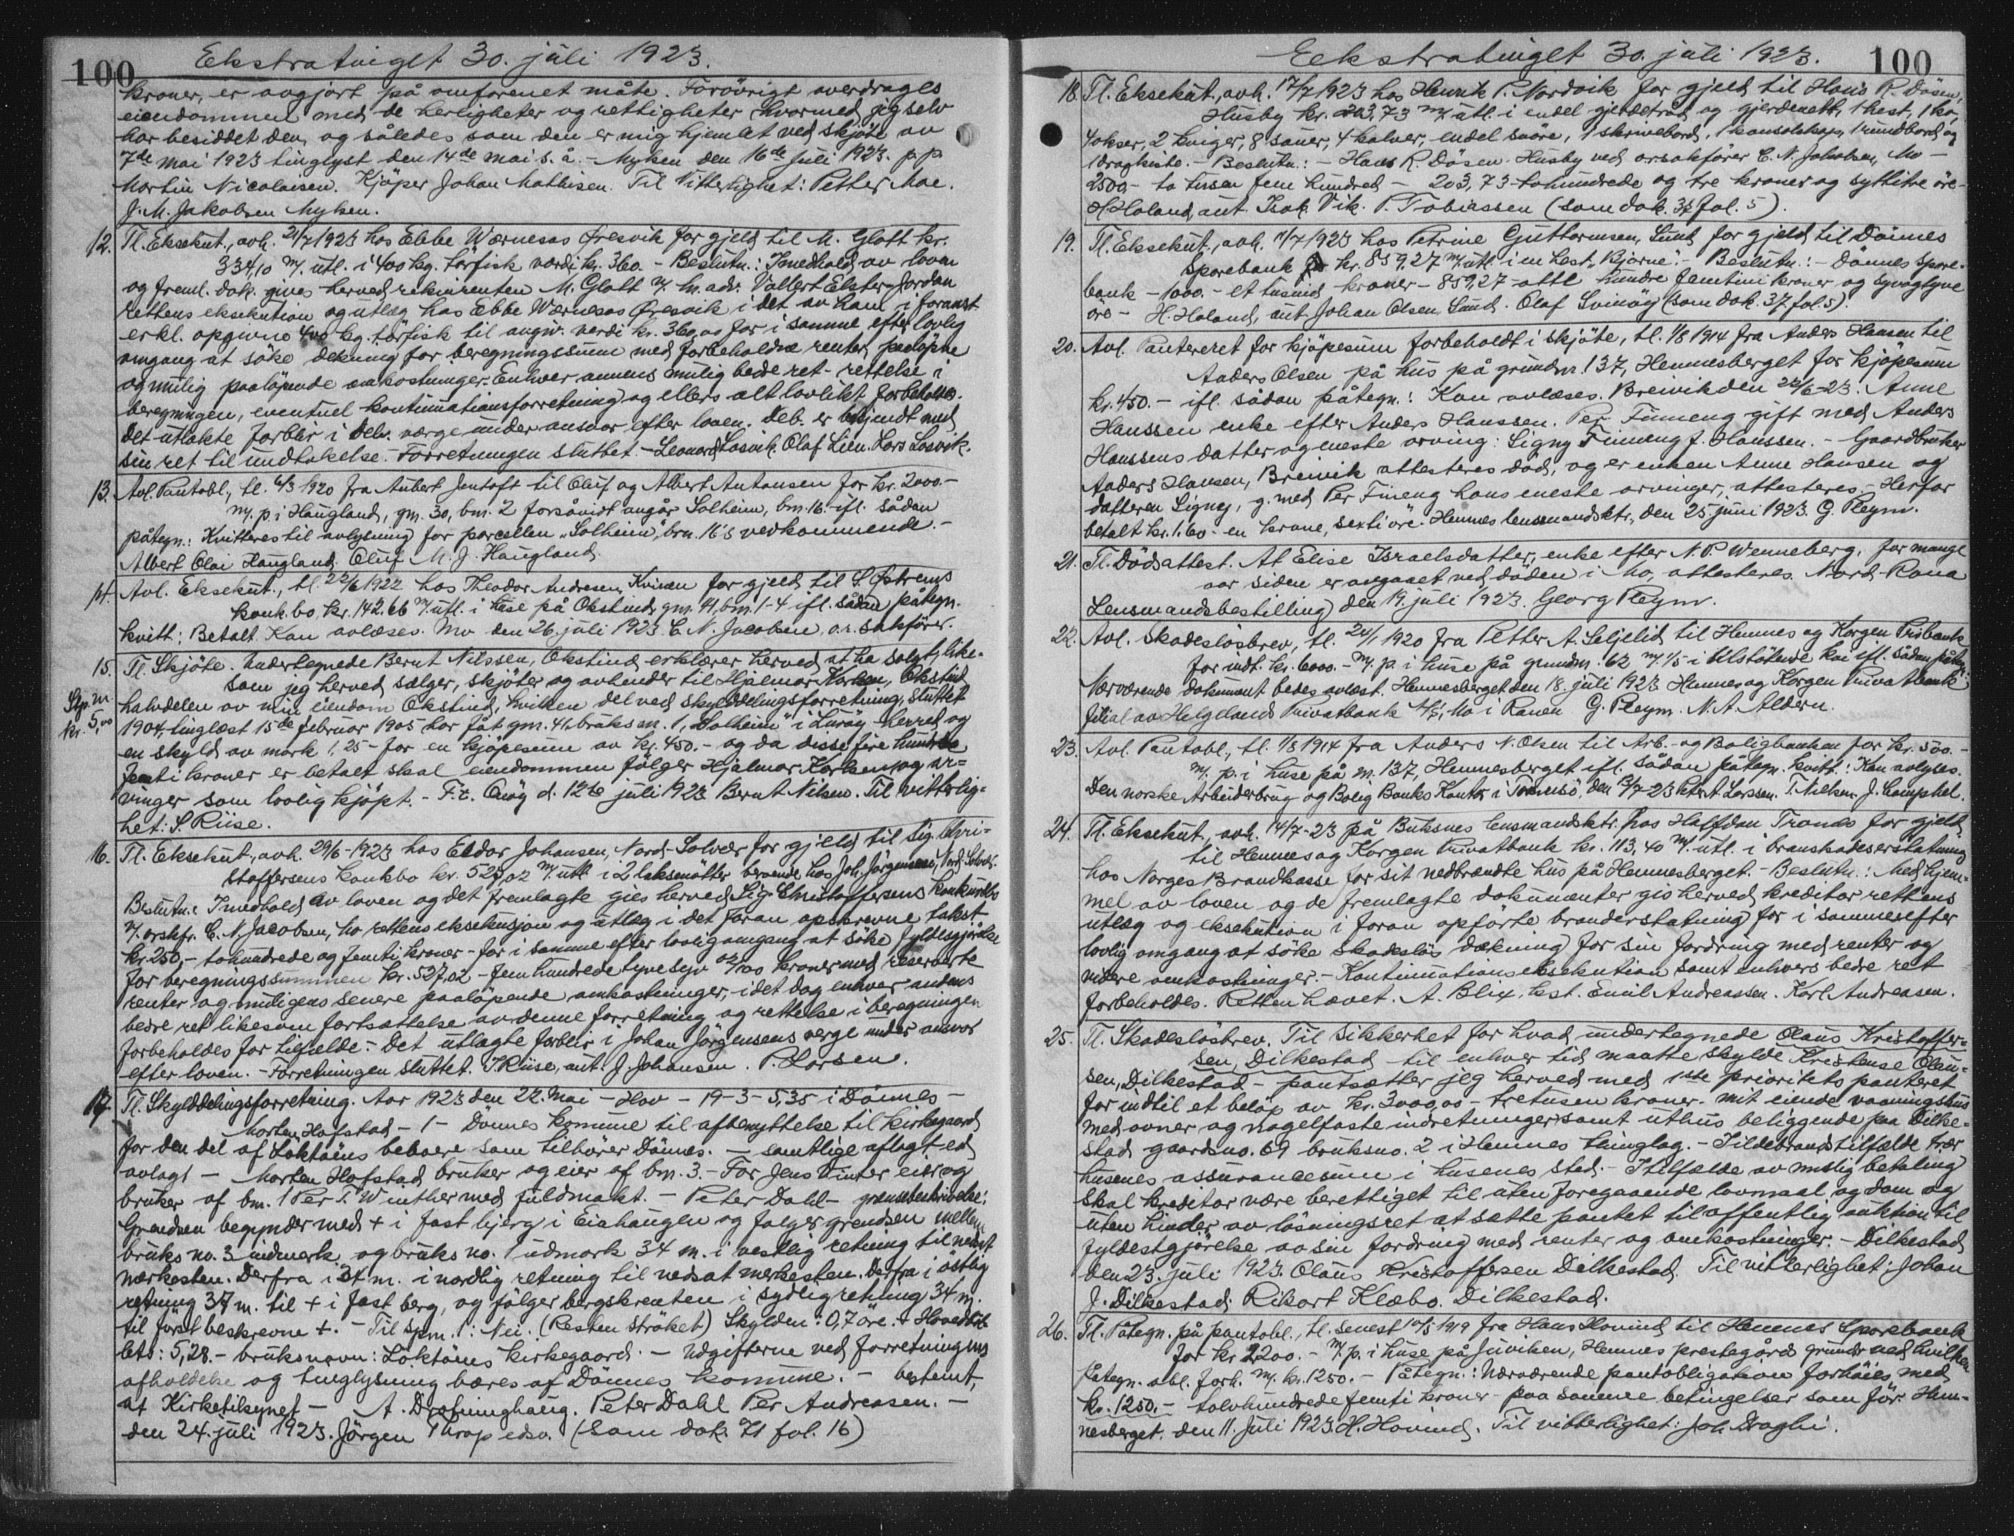 100
Ekstratinget 30. juli 1923.
kroner, er avgjort på omforenet måte. Forövrigt overdrages
eiendommen med de herligheter og rettigheter hvormed jeg selv
har besiddet den, og således som den er mig hjemlet ved skjöte av
7de mai 1923 tinglyst den 14de mai s.å. - Myken den 16de juli 1923. p.p.
Martin Nicolaisen. Kjöper Johan Mathisen. Til Vitterlighet: Petter Moe.
J. M. Jakobsen Myken.
12. Tl. Eksekut., avh. 21/7 1923 hos Ebbe Wærnesos Øresvik for gjeld til M. Glatt kr.
334,10 m/ utl. i 400 kg. törfisk værdi kr. 360. - Beslutn.: I medhold av loven
og freml. dok. gives herved rekvirenten M. Glatt v/ h.r. adv. Vallert Elster Jordan
rettens eksekution og utlæg hos Ebbe Wærnesos Øresvik i det av ham i foranst.
erkl. opgivne 400 kg. törfisk til angiv. verdi kr. 360,00 for i samme efter lovlig
omgang at söke dekning for beregningssum med forbeholdne renter, paalöpne
og mulig paalöpende omkostninger. Enhver annens mulig bedre ret - rettelse i
beregningen, eventuel kontinuationsforretning og ellers alt lovlikt forbeholdes.
Det utlakte forblir i deb. værge under ansvar efter loven. Deb. er bekjendt med
sin ret til undtakelse. Forretningen sluttet. - Leonard Løsvik. Olaf Lien. Lars Løsvik.
13. Avl. Pantobl., tl. 6/3 1920 fra Aubert Jentoft til Oluf og Albert Antonsen for kr. 2000.-
m/ p. i Haugland, gn. 30, bn. 2 forsåvidt angår Solheim, bn. 16 ifl. sådan
påtegn.: Kvitteres til avlysning for parcellen "Solheim", brn. 16's vedkommende. -
Albert Olai Haugland. Oluf M. J. Haugland.
14. Avl. Eksekut., tl. 22/6 1922 hos Theodor Andresen, Kvinen for gjeld til S. Østrems
konk.bo kr. 142.66 m/ utl. i huse på Okstind, gn. 41, bn. 1-4 ifl. sådan påtegn.
kvitt: Betalt. Kan avlæses. Mo den 26. juli 1923. C. N. Jacobsen, o.r. sakförer.
15. Tl. Skjöte. Undertegnede Bernt Nilssen, Okstind, erklærer herved at ha solgt, like-
som jeg herved sælger, skjöter og avhender til Hjalmar Karlsen, Okstind
Stp. m. kr. 5,00
halvdelen av min eiendom Okstind, hvilken del ved skylddelingsforretning, sluttet
1904, tinglæst 15de februar 1905 har fåt gn. 41, bruks nr. 1, "Solheim" i Luröy herred og
en skyld av mark 1,25 - for en kjöpesum av kr. 450.- og da disse fire hundre
femti kroner er betalt skal eiendommen fölger Hjalmar Karlsen og ar-
vinger som lovlig kjöpt. - F.t. Onöy d. 12te juli 1923 Bernt Nilsen. Til vitterlig-
het: S. Riise.
16. Tl. Eksekut., avh. 29/6-1923 hos Eldor Johansen, Nord-Solvær for gjeld til Sig. Chri-
stoffersens konkbo kr. 527,02 m/ utl. i 2 laksenötter beroende hos Joh. Jörgensen, Nord-Solvær.
Beslutn.: I medhold av loven og det fremlagte gies herved Sig. Christoffersens konkursbo
v/ orskfr. C. N. Jacobsen, Mo rettens eksekusjon og utlæg i det foran opskrevne takst
kr. 250,- tohundrede og femti kroner - for i samme efter lovlig omgang at söke fyldestgjörelse
for beregningssummen kr. 527,02 - fem hundrede tyve syv 02/100 kroner med reserverte
renter og muligens senere paalöpende omkostninger, - i det dog enhver andens
bedre ret likesom fortsættelse av denne forretning og rettelse i beregningen
forbeholdes for tilfælde. - Det utlagte forblir i Johan Jörgensens verge under ansvar
efter loven. - Forretningen sluttet. S. Riise, aut. J. Johansen. P. Larsen.
17. Tl. Skylddelingsforretning. Aar 1923 den 22. Mai - Hov - 19 - 3 - 5,35 i Dönnes -
Morten Hofstad - 1 - Dönnes Komune til afbenyttelse til kirkegaard
for den del af Löktaens beboere som tilhører Dönnes. - samtlige aflagt ed
avlagt - Morten Hofstad bruker og eier af bn. 3 - For Jens Winter eier og
bruker af bn. 1 Per L. Winther med fuldmakt. - Peter Dahl - grensebeskrivelse:
Grendsen begynder med + i fast bjerg i Eiahaugen og fölger grendsen mellem
bruks no. 3 indmerk og bruks no. 1 udmark 34 m. i vestlig retning til nedsat
merkesten. Derfra i 34 m. i nordlig retning til nedsat merkesten. Derfra i östlig
retning 37 m. til + i fast berg, og fölger bergskrenten i sydlig retning 34 m.
til först beskrevne +. - Til spm. 1: Nei. (Resten ströket) Skylden: 0,7 öre. + Hovedböl
lets: 5,28. - bruksnavn: Löktaens kirkegaard. - Udgifterne ved forretningens
afholdelse og tinglysning bæres af Dönnes komune. - bestemt
af Kirketilsynet - A. Drosunghaug. Peter Dahl Per Andreasen. -
den 24. juli 1923. Jörgen Thrap edsv. (Som dok. 71 fol. 16)
100
Eekstratinget 30. juli 1923.
18. Tl. Eksekut., avh. 17/7 1923 hos Henrik P. Nordvik for gjeld til Hans R. Dösen,
Husby kr. 203,73 m/ utl. i endel gjerdetråd og gjerdenett, 1 hest, 1 ko,
4 okser, 2 kviger, 8 sauer, 4 kalver, endel saore, 1 skrivebord, 1 konsolskap, 1 rundbord og
1 dragkiste. - Beslutn.: - Hans R. Dösen. Husby ved orsakförer C. N. Jakobsen, Mo -
2500,- to tusen fem hundred - 203,73 - tohundrede og tre kroner og syttitre öre -
H. Holand, aut. Isak Vik. P. Tobiassen (som dok. 37 fol. 5).
19. Tl. Eksekut., avh. 17/7 1923 hos Petrine Guttormsen, Sund for gjeld til Dönnes
Sparebank kr. 859,27 m/ utl. i en hest "Bjarne". - Beslutn.: - Dönnes Spare-
bank - 1000.- et tusind kroner - 859,27 - atte hundre femtini kroner og syvogtyve
öre - H. Holand, aut Johan Olsen, Sund. Olaf Svinöy (som dok. 37 fol. 5).
20. Avl. Panteret for kjöpesum forbeholdt i skjöte, tl. 1/8 1914 fra Anders Hansen til
Anders Olsen på hus på grundnr. 137, Hemnesberget for kjöpesum
kr. 450.- ifl. sådan påtegn.: Kan avlæses. Breivik den 22/6-23. Anne
Hanssen enke efter Anders Hanssen. Per Finneng gift med Anders
Hanssens datter og eneste arving: Signy Finneng f. Hanssen. - Gaardbruker
Anders Hansen, Breivik attesteres död, og er enken Anne Hansen og
datteren Signey, g. med Per Fineng hans eneste arvinger, attesteres. - Herfor
betalt kr. 1.60 - en krone, seksti öre. Hemnes lensmandsktr., den 25. juni 1923. G. Pleym.
21. Tl. Dödsattest. At Elise Israelsdatter, enke efter N. P. Wenneberg, for mange
aar siden er avgaaet ved döden i Mo, attesteres. Nord-Rana
Lensmandsbestilling den 19. juli 1923. Georg Pleym.
22. Avl. Skadeslösbrev, tl. 24/1 1920 fra Petter A. Seljelid til Hemnes og Korgen Pribank
for indt. kr. 6000.- m/ p. i huse på grundnr. 62 m/ 1/5 i tilstötende kai ifl. sådan påtegn.
Nærværende dokument bedes avlæst. Hemnesberget den 18. juli 1923 Hemnes og Korgen Privatbank
filial av Helgelands Privatbank A/S, Mo i Ranen G. Pleym. N. A. Aldern.
23. Avl. Pantobl., tl. 1/8 1914 fra Anders N. Olsen til Arb.- og Boligbanken for kr. 500.-
m/ p. i huse på nr. 137, Hemnesberget ifl. sådan påtegn. kvitt.: Kan avlyses.
Den norske Arbeiderbrug og Bolig Banks Kontor i Tromsö, den 12/7-23 Petr. A. Larssen. T. Nielsen. J. Hamphel.
24. Tl. Eksekut., avh. 14/7-23 på Buksnes lensmandsktr. hos Halfdan Tranås for gjeld
til Hemnes og Korgen Privatbank kr. 113,40 m/ utl. i branskadeserstatning
hos Norges Brandkasse for sit nedbrændte hus på Hemnesberget. - Beslutn.: Med hjem-
mel av loven og de fremlagte dokumenter gis herved kreditor rettens
utlæg og eksekution i foran opförte branderstatning for i samme efter
lovlig omgang at söke skadeslös dækning for sin fordring med renter og
videre omkostninger. - Kontinuationseksekution samt enhvers bedre ret
forbeholdes. Retten hævet. A. Blix, kst. Emil Andreassen. Karl Andreasen.
25. Tl. Skadeslösbrev. Til sikkerhet for hvad undertegnede Olaus Kristoffer-
sen, Dilkestad til enhver tid maatte skylde Kristense Olau-
sen, Dilkestad - pantsætter jeg herved med 1ste prioritets panteret
for indtil et beløp av kr. 3000,00 - tretusen kroner - mit eiende vaaningshus
med ovner og nagelfaste indretninger samt uthus beliggende paa Dilke-
stad gaardsno. 69 bruksno. 2 i Hemnes tinglag. - I ildebrandstilfælde trær
husenes assurancesum i husenes sted. - I tilfælde av mislig betaling
skal kreditor være berettiget til uten foregaaende lovmaal og dom og
uten hinder av lösningsret at sætte pantet til offentlig auktion til
fyldestgjörelse av sin fordring med renter og omkostninger. - Dilkestad
den 23. juli 1923. Olaus Kristoffersen Dilkestad. Til vitterlighet: Johan
J. Dilkestad. Rikart Klæbo. Dilkestad.
26. Tl. Påtegn. på pantobl., tl. senest 10/5 1919 fra Hans Hovind til Hemnes Sparebank
for kr. 2200.- m/ p. i huse på Juviken, Hemnes prestegårds grund ved hvilken
påtegn. obl. forh. m/ kr. 1250.- Påtegn.: Nærværende pantobligation forhöies med
kr. 1250.- tolvhundredefemti kroner - paa samme betingelser som för. Hem-
nesberget, den 11. Juli 1923. H. Hovind. Til vitterlighet: Joh. Dragli.